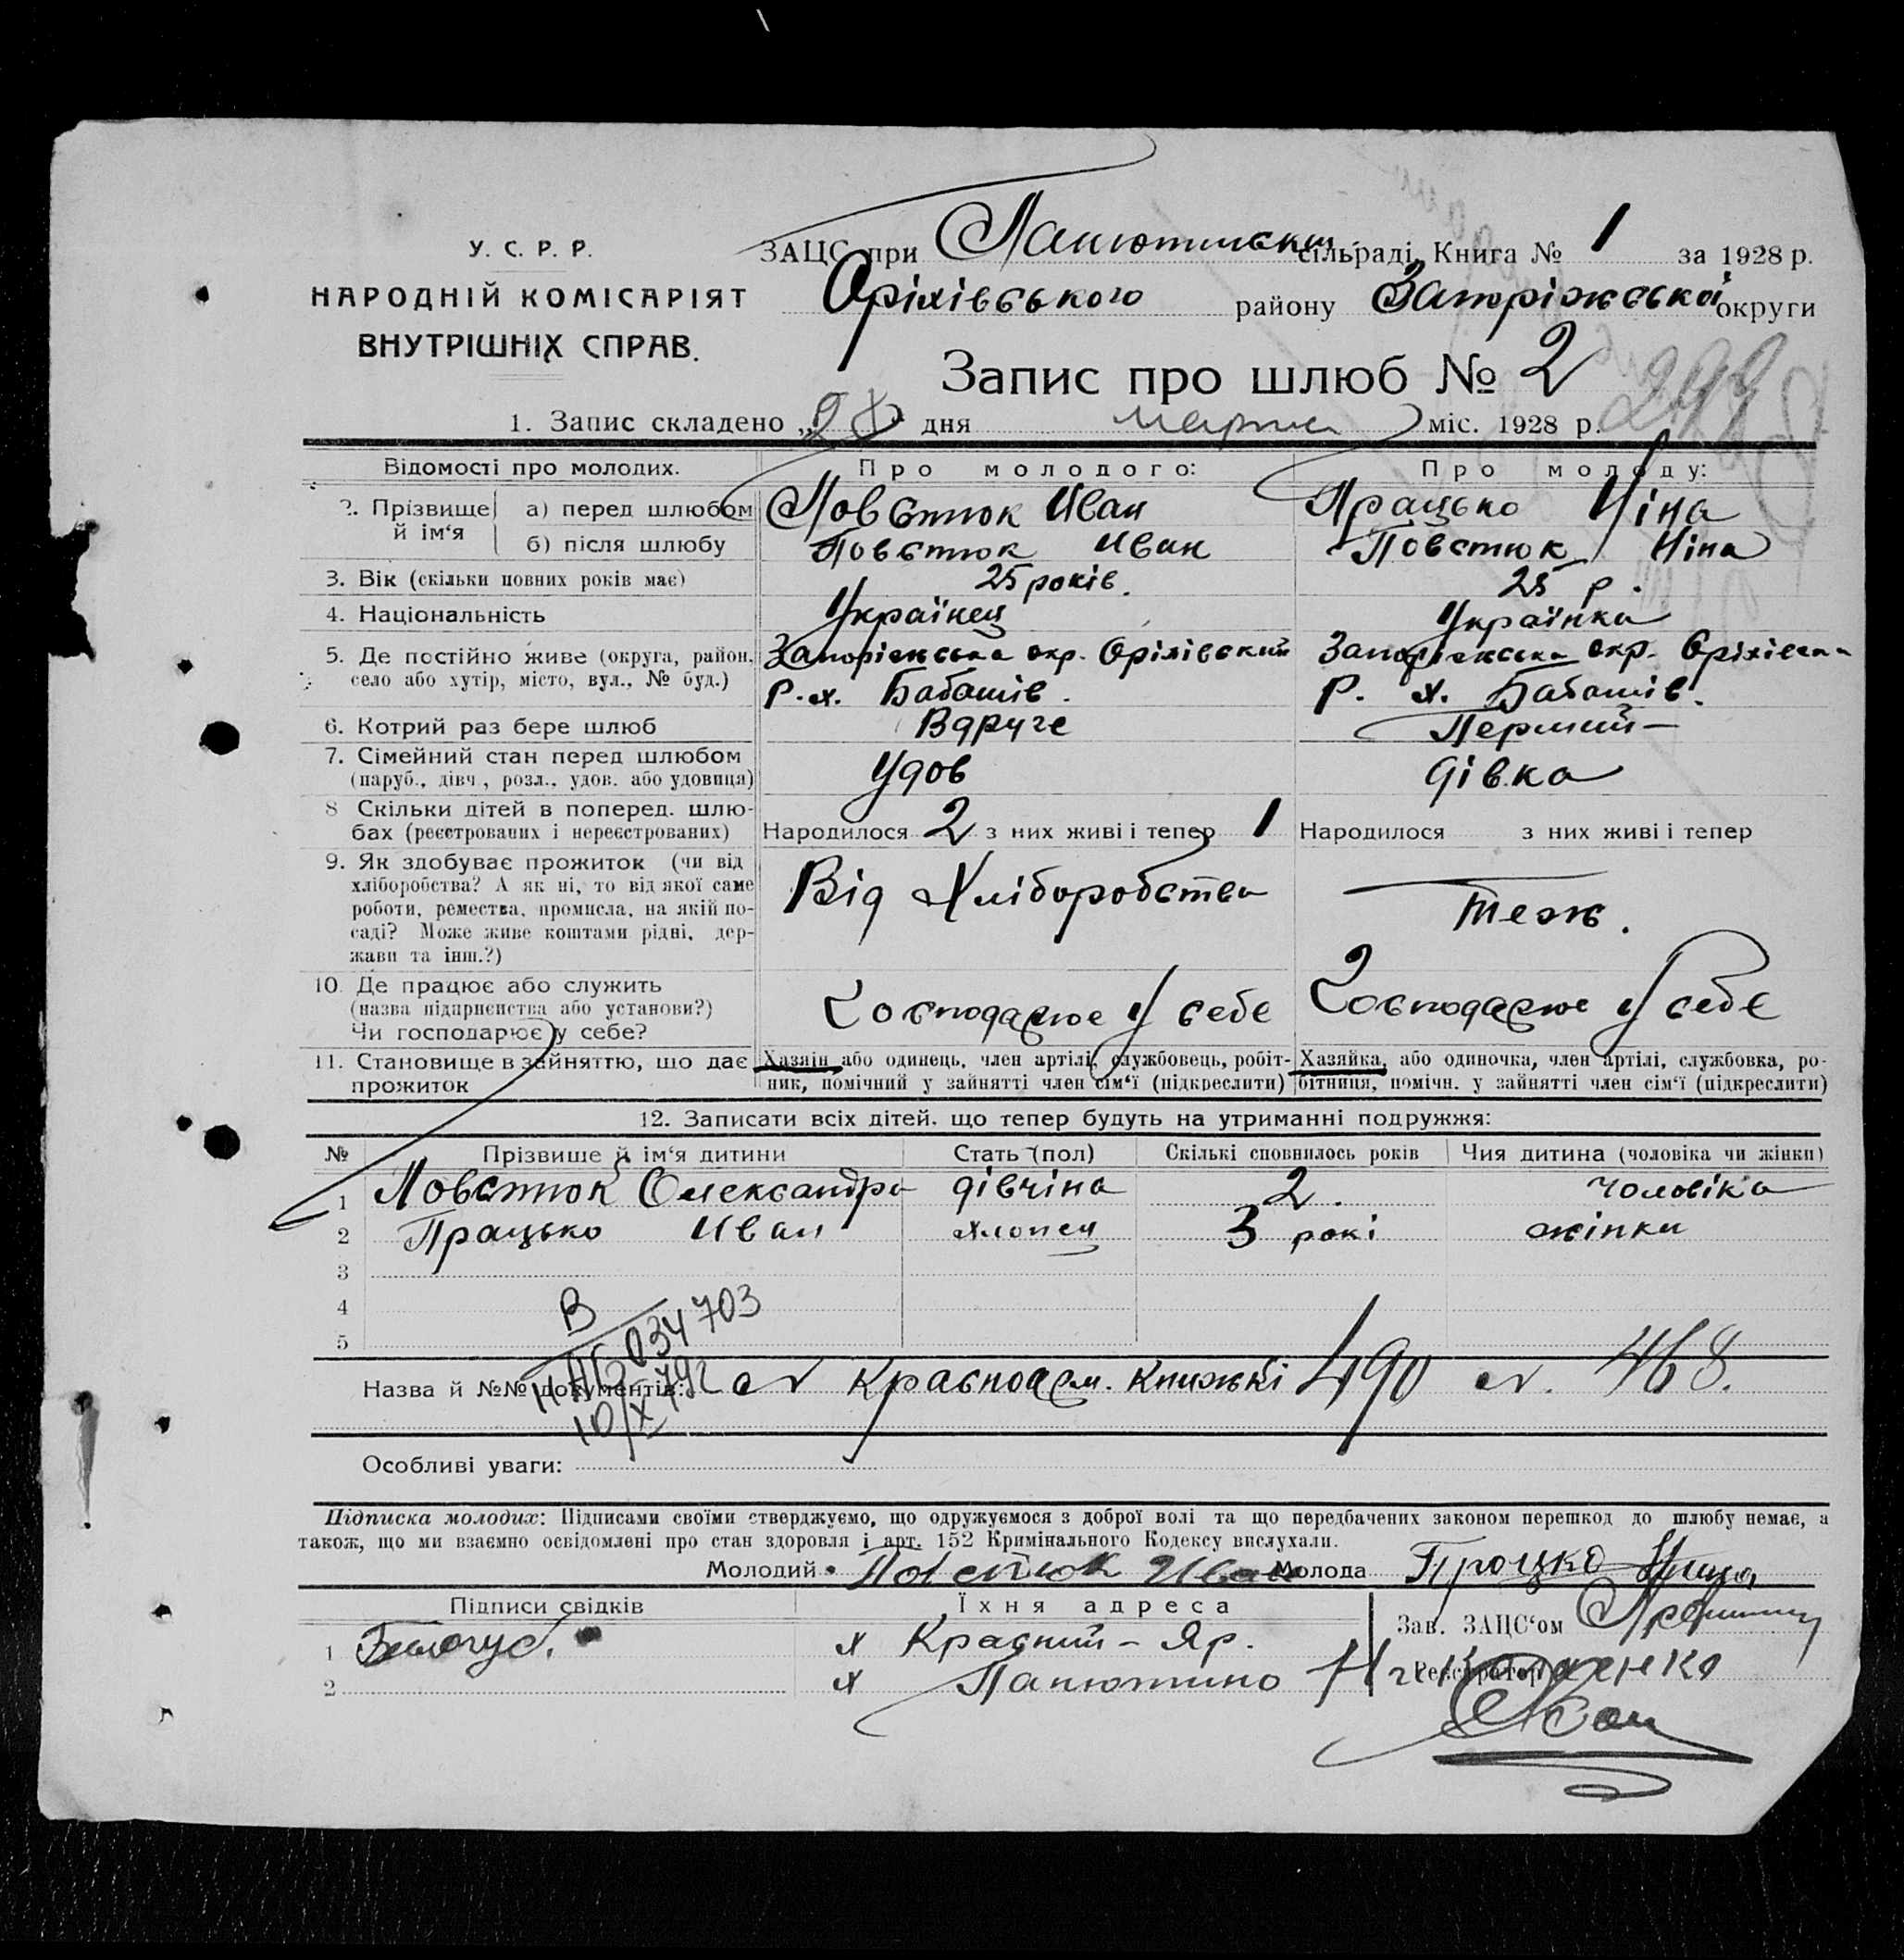 У. С. Р. Р.
НАРОДНІЙ КОМІСАРІЯТ
ВНУТРІШНІХ СПРАВ.
ЗАЦС при Панютинскій сільраді, Книга № 1 за 1928 р.
Оріхівського району Запоріжської округи
Запис про шлюб № 2
1. Запис складено „ “ дня марта міс. 1928 р.
Відомості про молодих. Про молодого: Про молоду:
2. Прізвище й ім‘я а) перед шлюбом Повстюк Иван Працько Ніна
б) після шлюбу Повстюк Иван Повстюк Ніна
3. Вік (скільки повних років має) 25 років. 25 р.
4. Національність Українец Українка
5. Де постійно живе (округа, район, Запоріжська окр. Оріхівский Запоріжська окр. Оріхівск
село або хутір, місто, вул., № буд.) Р. х. Бабашів. Р. х. Бабашів.
6. Котрий раз бере шлюб Вдруге Перший
7. Сімейний стан перед шлюбом Удов дівка
(паруб., дівч., розл., удов. або удовиця)
8 Скільки дітей в поперед. шлю-
бах (реєстрованих і нереєстрованих) Народилося 2 з них живі і тепер 1 Народилося з них живі і тепер
9. Як здобуває прожиток (чи від
хліборобства? А як ні, то від якої саме Від Хліборобства Теж.
роботи, ремества, промисла, на якій по-
саді? Може живе коштами рідні, дер-
жави та інш.?)
10. Де працює або служить
(назва підприєнства або установи?) Господарює у себе Господарює у себе
Чи господарює у себе?
11. Становище в зайняттю, що дає Хазяін або одинець, член артілі, службовець, робіт- Хазяйка, або одиночка, член артілі, службовка, ро-
прожиток ник, помічний у зайнятті член сім‘ї (підкреслити) бітниця, помічн. у зайнятті член сім‘ї (підкреслити)
12. Записати всіх дітей, що тепер будуть на утриманні подружжя:
№ Прізвище й ім‘я дитини Стать (пол) Скількі сповнилось років Чия дитина (чоловіка чи жінки)
1 Повстюк Олександра дівчіна 2. чоловіка
2 Працько Иван хлопец 3 рокі жінки
3
4
5
В
034703
Назва й №№ документів: красноарм. книжкі 490 468.
10/X
Особливі уваги:
Підписка молодих: Підписами своїми стверджуємо, що одружуємося з доброї волі та що передбачених законом перешкод до шлюбу немає, а
також, що ми взаємно освідомлені про стан здоровля і арт. 152 Кримінального Кодексу вислухали.
Молодий Повстюк Иван Молода Процко Нина
Підписи свідків Їхня адреса Зав. ЗАЦС‘ом
1 х Красний-Яр.
2 х Панютино Реєстратор